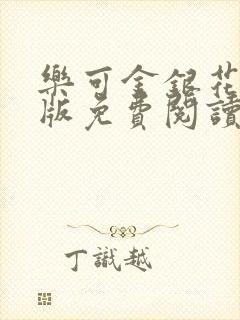 樂可金銀花
版免費閱讀
丁識越